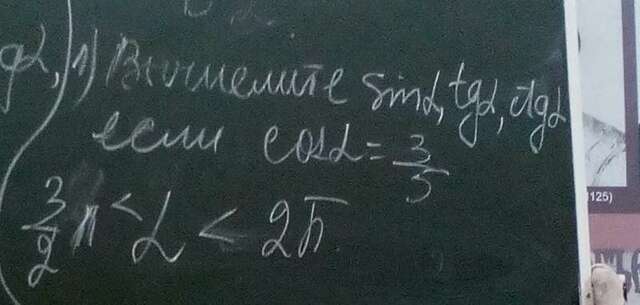 gα, 1) Вычислите sinα, tgα, ctgα
если cosα = 3/5
3/2 π < α < 2π
125)